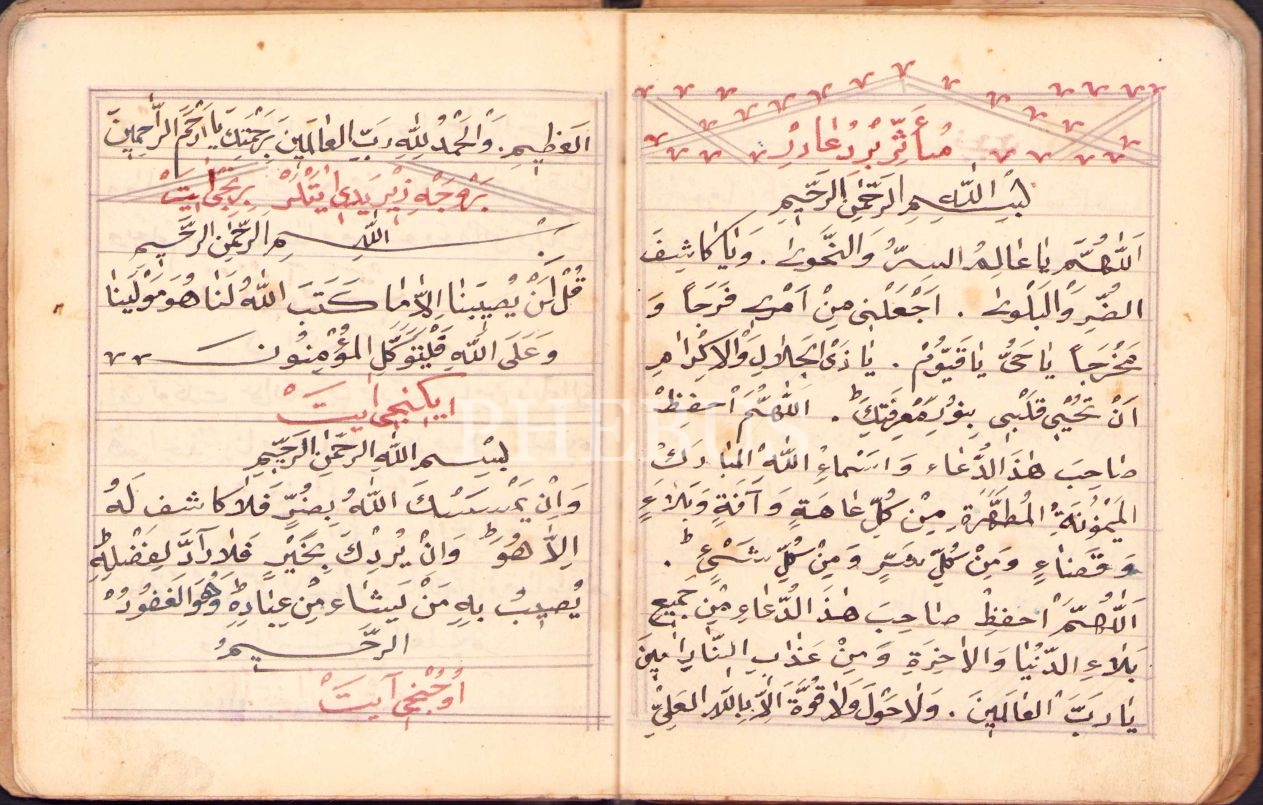 مُأثِّرْ بْرْ دُعَادِرْ
بِسْمِ اللّٰهِ الرَّحْمٰنِ الرَّحِيمِ
اَللّٰهُمَّ يَا عَالِمُ السِرُّ وَالنَّجْوٰى . وَيَا كَاشِفَ
الضُّرِّ وَالْبَلْوٰى . اَجْعَلْنِى مِنْ اَمْرِى فَرَجاً وَ
مَخْرَجاً يَا حَىُّ يَا قَيُّومُ . يَا ذَى الْجَلَالِ وَالْاِكْرَامِ
اَنْ تُحْيِىْ قَلْبِى بِنُورِ مَعْرِفَتِكَ ط . اَللّٰهُمَّ احْفِظْ
صَاحِبَ هٰذَ الدُّعَاءِ وَاَسْمَاءُ اللّٰهُ الْمُبَارَكَ
الْمَيْمُونَةِ الْمُطَهَّرَةِ مِنْ كُلِّ عَاهَةٍ وَآفَةٍ وَبَلَاءٍ
وَقَضَاءٍ وَمِنْ كُلِّ شَرٍّ وَمِنْ كُلِّ شَىْءٍ ط .
اَللّٰهُمَّ احْفِظْ صَاحِبَ هٰذَ الدُّعَاءِ مِنْ جَمِيعِ
بَلَاءِ الدُّنْيَا وَالْاٰخِرَةِ وَمِنْ عَذَابِ النَّارِ اٰمِينَ
يَا رَبَّ الْعَالَمِينَ . وَلَا حَوْلَ وَلَا قُوَّةَ اَلَّا بِاللّٰهِ الْعَلِىِّ
الْعَظِيمِ . وَالْحَمْدُ لِلّٰهِ رَبِّ الْعَالَمِينَ بِرَحْمَتِكَ يَا اَرْحَمَ الرَّاحِمِينَ
بْرِنْجِى اٰيَتْ
بِسْمِ اللّٰهِ الرَّحْمٰنِ الرَّحِيمِ
قُلْ لَنْ يُصِيبَنَا اِلَّا مَا كَتَبَ اللّٰهُ لَنَا هُوَ مَوْلٰينَا
وَعَلَى اللّٰهِ فَلْيَتَوَكَّلِ الْمُؤْمِنُونَ
اِيكِنْجِى اٰيَتْ
بِسْمِ اللّٰهِ الرَّحْمٰنِ الرَّحِيمِ
وَاِنْ يَمْسَسْكَ اللّٰهُ بِضُرٍّ فَلَا كَاشِفَ لَهُ
اِلَّا هُوَ ط وَاِنْ يُرِدْكَ بِخَيْرٍ فَلَا رَآدَّ لِفَضْلِهِ ط
يُصِيبُ بِهِ مَنْ يَشَاءُ مِنْ عِبَادِهِ ط وَهُوَ الْغَفُورُ
الرَّحِيمُ
اُوچُنْجِى آيَتْ
PHEBUS